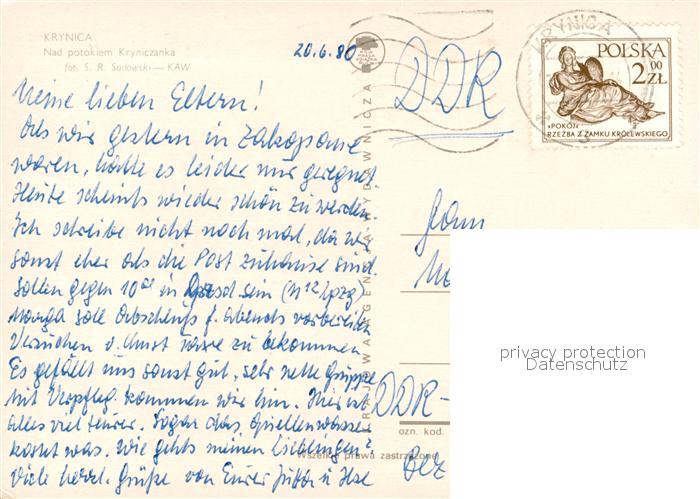 KRYNICA
Nad potokiem Kryniczanka
fot. S. R. Sadowski — KAW
20.6.80
DDR
KRYNICA
POLSKA
2 00 ZŁ
»POKÓJ«
RZEŹBA Z ZAMKU KRÓLEWSKIEGO
KRAJOWA AGENCJA WYDAWNICZA
Meine lieben Eltern!
Als wir gestern in Zakopane
waren, hatte es leider nur geregnet.
Heute scheints wieder schön zu werden.
Ich schreibe nicht noch mal, da wir
sonst eher als die Post zuhause sind.
Sollen gegen 10 in sein (n 12 Lpzg)
soll f. abends vorbereiten
Versuchen v. zu bekommen
Es gefällt uns sonst gut, sehr nette Gruppe
Mit Verpfleg. kommen wir hin. Hier ist
alles viel teurer. Sogar das Quellenwasser
kostet was. Wie gehts meinen Lieblingen?
Viele herzl. Grüße von Eurer Jutta u. Ilse
Fam
DDR-
ozn. kod.
Wszelkie prawa zastrzeżone
Bez
privacy protection
Datenschutz